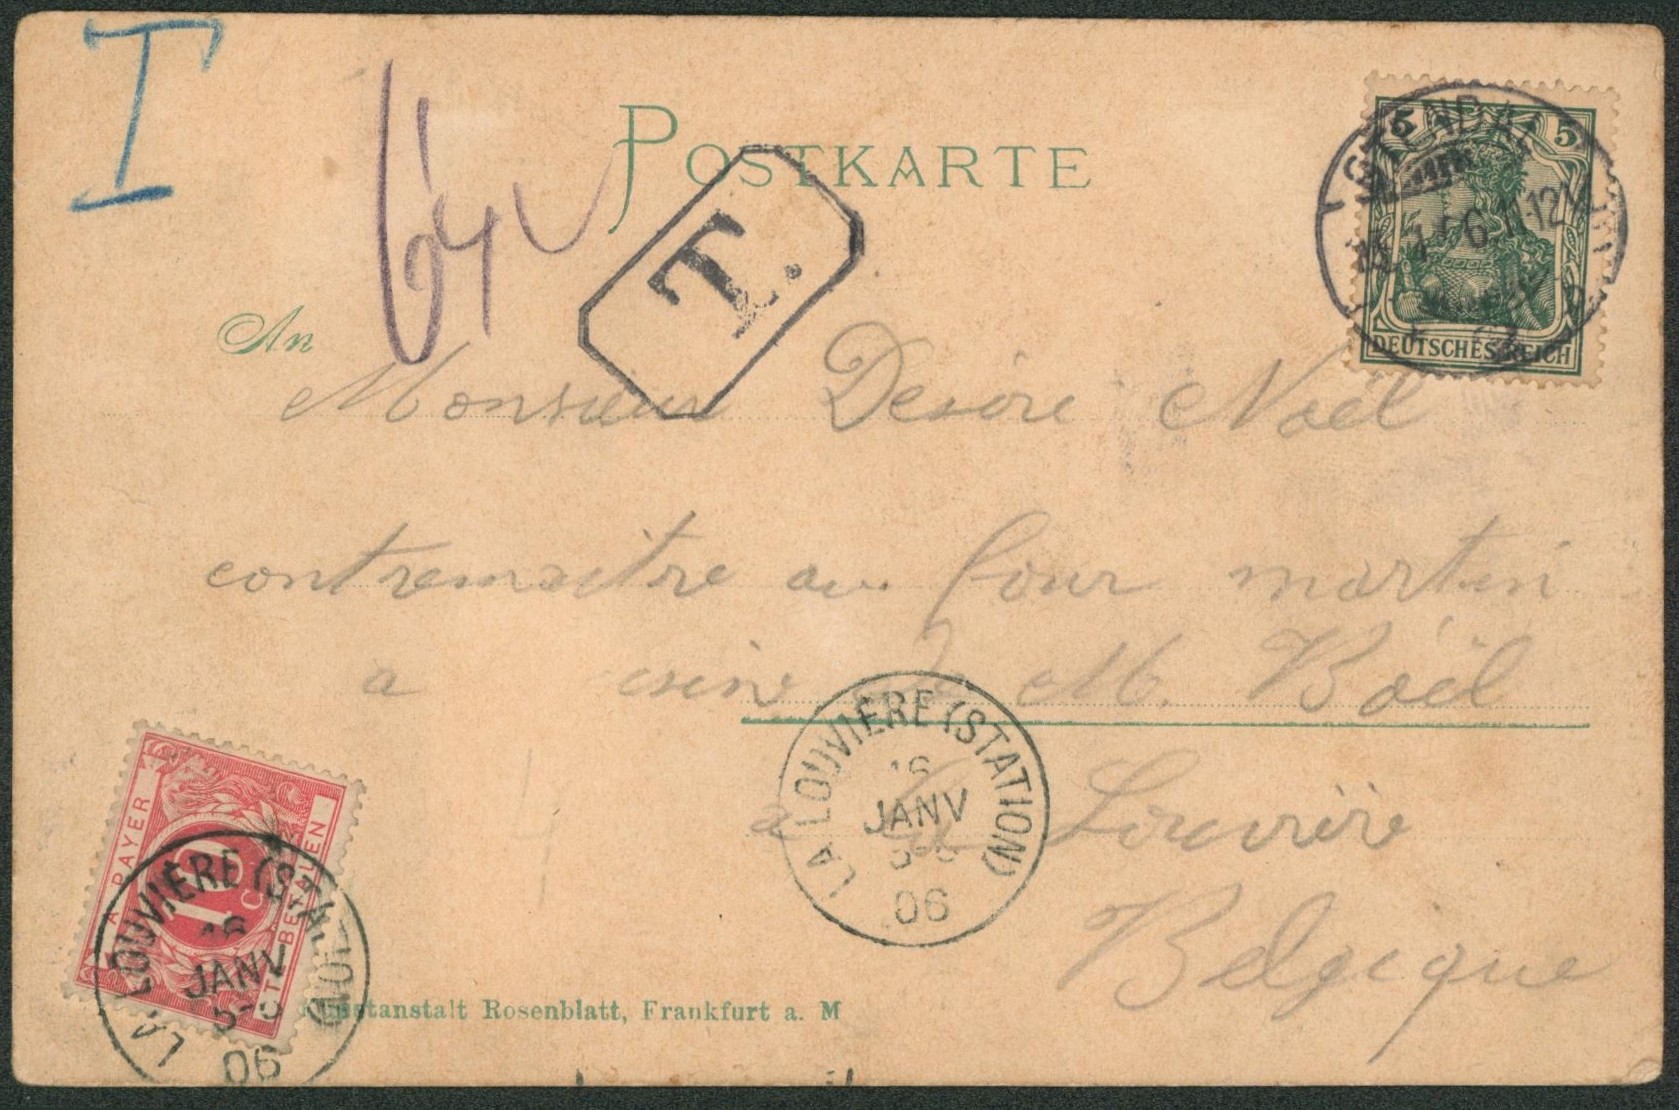 T
POSTKARTE
T.
5 5
DEUTSCHES REICH
An
Monsieur Desiré Noël
contremaitre au four martin
a usine de M. Boël
a La Louvière
Belgique
LA LOUVIÈRE (STATION)
16
JANV
06
A PAYER
10 c
TE BETALEN
LA LOUVIÈRE (STATION)
16
JANV
5-6
06
Kunstanstalt Rosenblatt, Frankfurt a. M